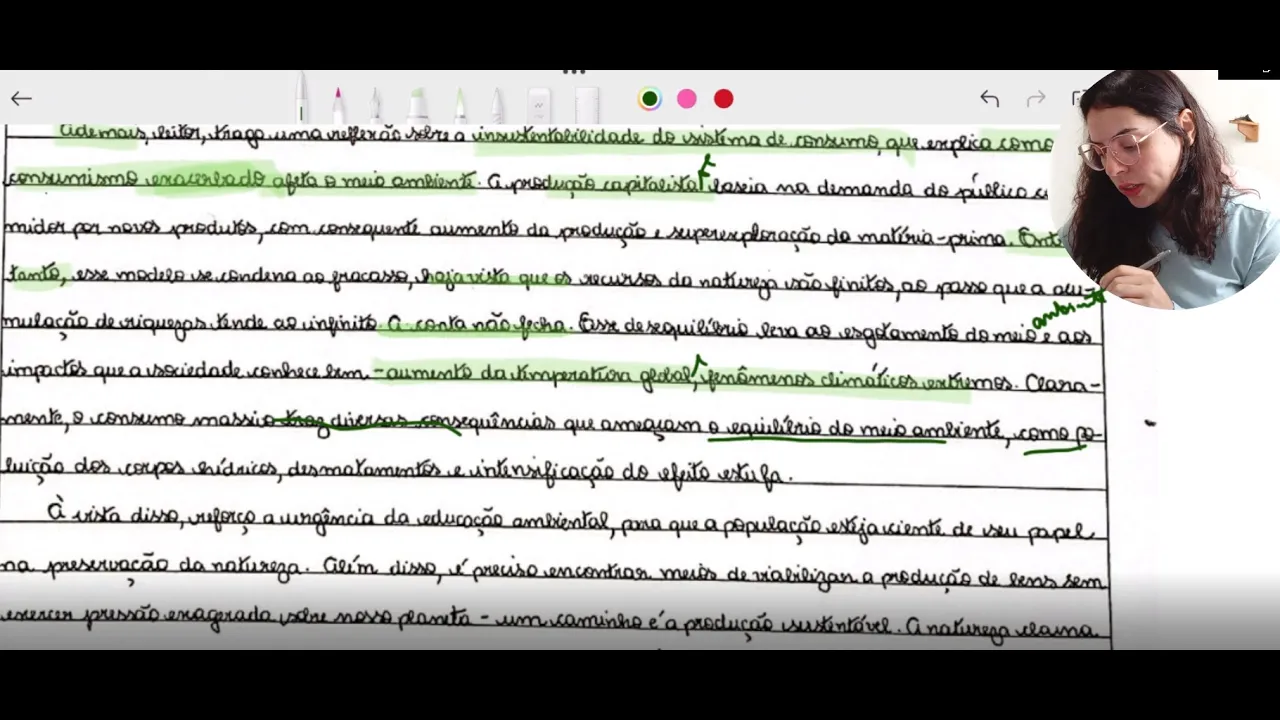 Ademais, leitor, trago uma reflexão sobre a insustentabilidade do sistema de consumo, que explica como
consumismo exacerbado afeta o meio ambiente. A produção capitalista baseia na demanda do público
midor por novos produtos, com consequente aumento da produção e superexploração da matéria-prima.
tanto, esse modelo se condena ao fracasso, haja vista que os recursos da natureza são finitos, ao passo que a acu-
ambiente
mulação de riquezas tende ao infinito. A conta não fecha. Esse desequilíbrio leva ao esgotamento do meio e aos
impactos que a sociedade conhece bem - aumento da temperatura global, fenômenos climáticos extremos. Clara-
mente, o consumo massivo traz diversas consequências que ameaçam o equilíbrio do meio ambiente, como po-
luição dos corpos hídricos, desmatamentos e intensificação do efeito estufa.
À vista disso, reforço a urgência da educação ambiental, para que a população esteja ciente de seu papel
na preservação da natureza. Além disso, é preciso encontrar meios de viabilizar a produção de bens sem
exercer pressão exagerada sobre nosso planeta - um caminho é a produção sustentável. A natureza clama